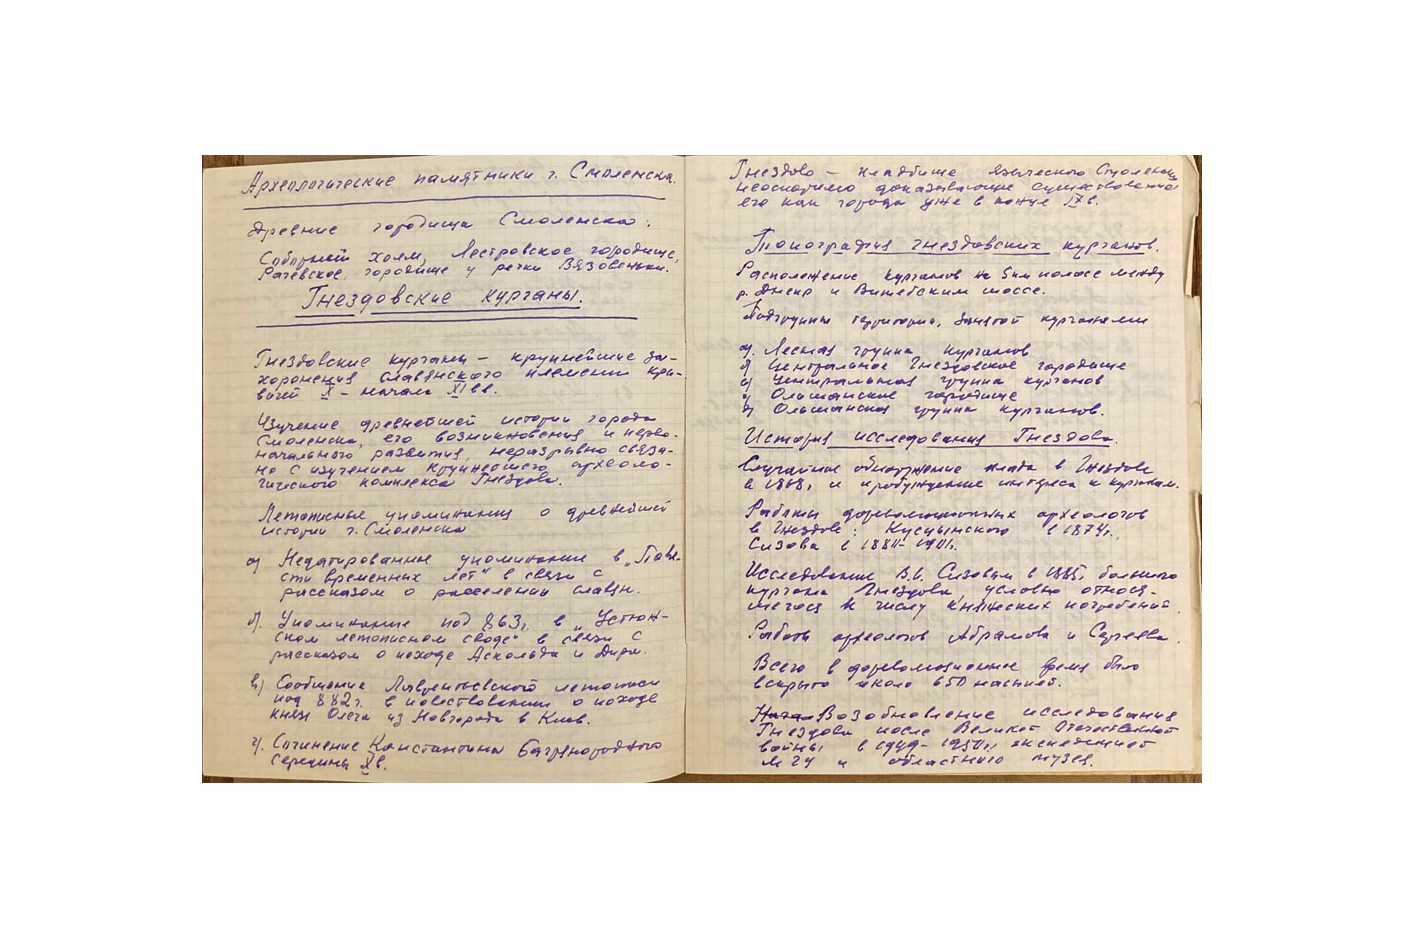 Археологические памятники г. Смоленска.
Древние городища Смоленска:
Соборный холм, Ястровское городище,
Рачевское, городище у речки Вязовеньки.
Гнездовские курганы.
Гнездовские курганы – крупнейшие за-
хоронения славянского племени кри-
вичей X – начала XI вв.
Изучение древнейшей истории города
Смоленска, его возникновения и перво-
начального развития, неразрывно связа-
но с изучением крупнейшего археоло-
гического комплекса Гнездова.
Летописные упоминания о древнейшей
истории г. Смоленска
а) Недатированное упоминание в „Пове-
сти временных лет" в связи с
рассказом о расселении славян.
б). Упоминание под 863 г. в „Устюж-
ском летописном своде" в связи с
рассказом о походе Аскольда и Дира.
в) Сообщение Лаврентьевского летописи
под 882 г. в повествовании о походе
князя Олега из Новгорода в Киев.
г). Сочинение Константина Багрянородного
середины X в.
Гнездово – кладбище языческого Смоленска,
неоспоримо доказывающее существование
его как города уже в конце IX в.
Топография гнездовских курганов.
Расположение курганов на 5 км полосе между
р. Днепр и Витебским шоссе.
Подгруппы территории, занятой курганами
а). Лесная группа курганов
б) Центральное Гнездовское городище
в) Центральная группа курганов
г) Ольшанское городище
д) Ольшанская группа курганов.
История исследования Гнездова.
Случайное обнаружение клада в Гнездове
в 1868 г. и пробуждение интереса к курганам.
Работы дореволюционных археологов
в Гнездове: Кусцынского в 1874 г.,
Сизова с 1881 – 1901 г.
Исследование В.И. Сизовым в 1885 г. большого
кургана Гнездова, условно относя-
щегося к числу княжеских погребений.
Работы археологов Абрамова и Сергеева.
Всего в дореволюционное время было
вскрыто около 650 насыпей.
Возобновление исследования
Гнездова после Великой Отечественной
войны в 1949 – 1950 гг. экспедицией
МГУ и областного музея.